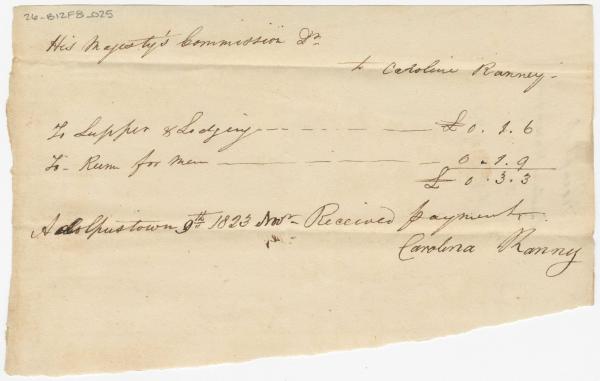 26-B12F8_025
His Majesty's Commission Dr.
to Caroline Ranney.
To Supper & Lodging £0.1.6
To Rum for Men 0.1.9
£0.3.3
Adolphustown 9th 1823 Novr Received payment
Carolina Ranny